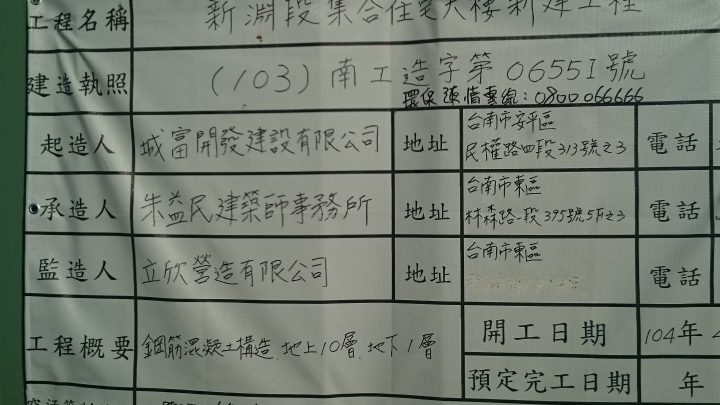 工程名稱 新淵段集合住宅大樓新建工程
建造執照 (103)南工造字第06551號
環保陳情專線:0800066666
起造人 城富開發建設有限公司 地址 台南市安平區 電話
民權路四段313號之3
承造人 朱益民建築師事務所 地址 台南市東區 電話
林森路一段395號5F之3
監造人 立欣營造有限公司 地址 台南市東區 電話
工程概要 鋼筋混凝土構造.地上10層.地下1層 開工日期 104年
預定完工日期 年